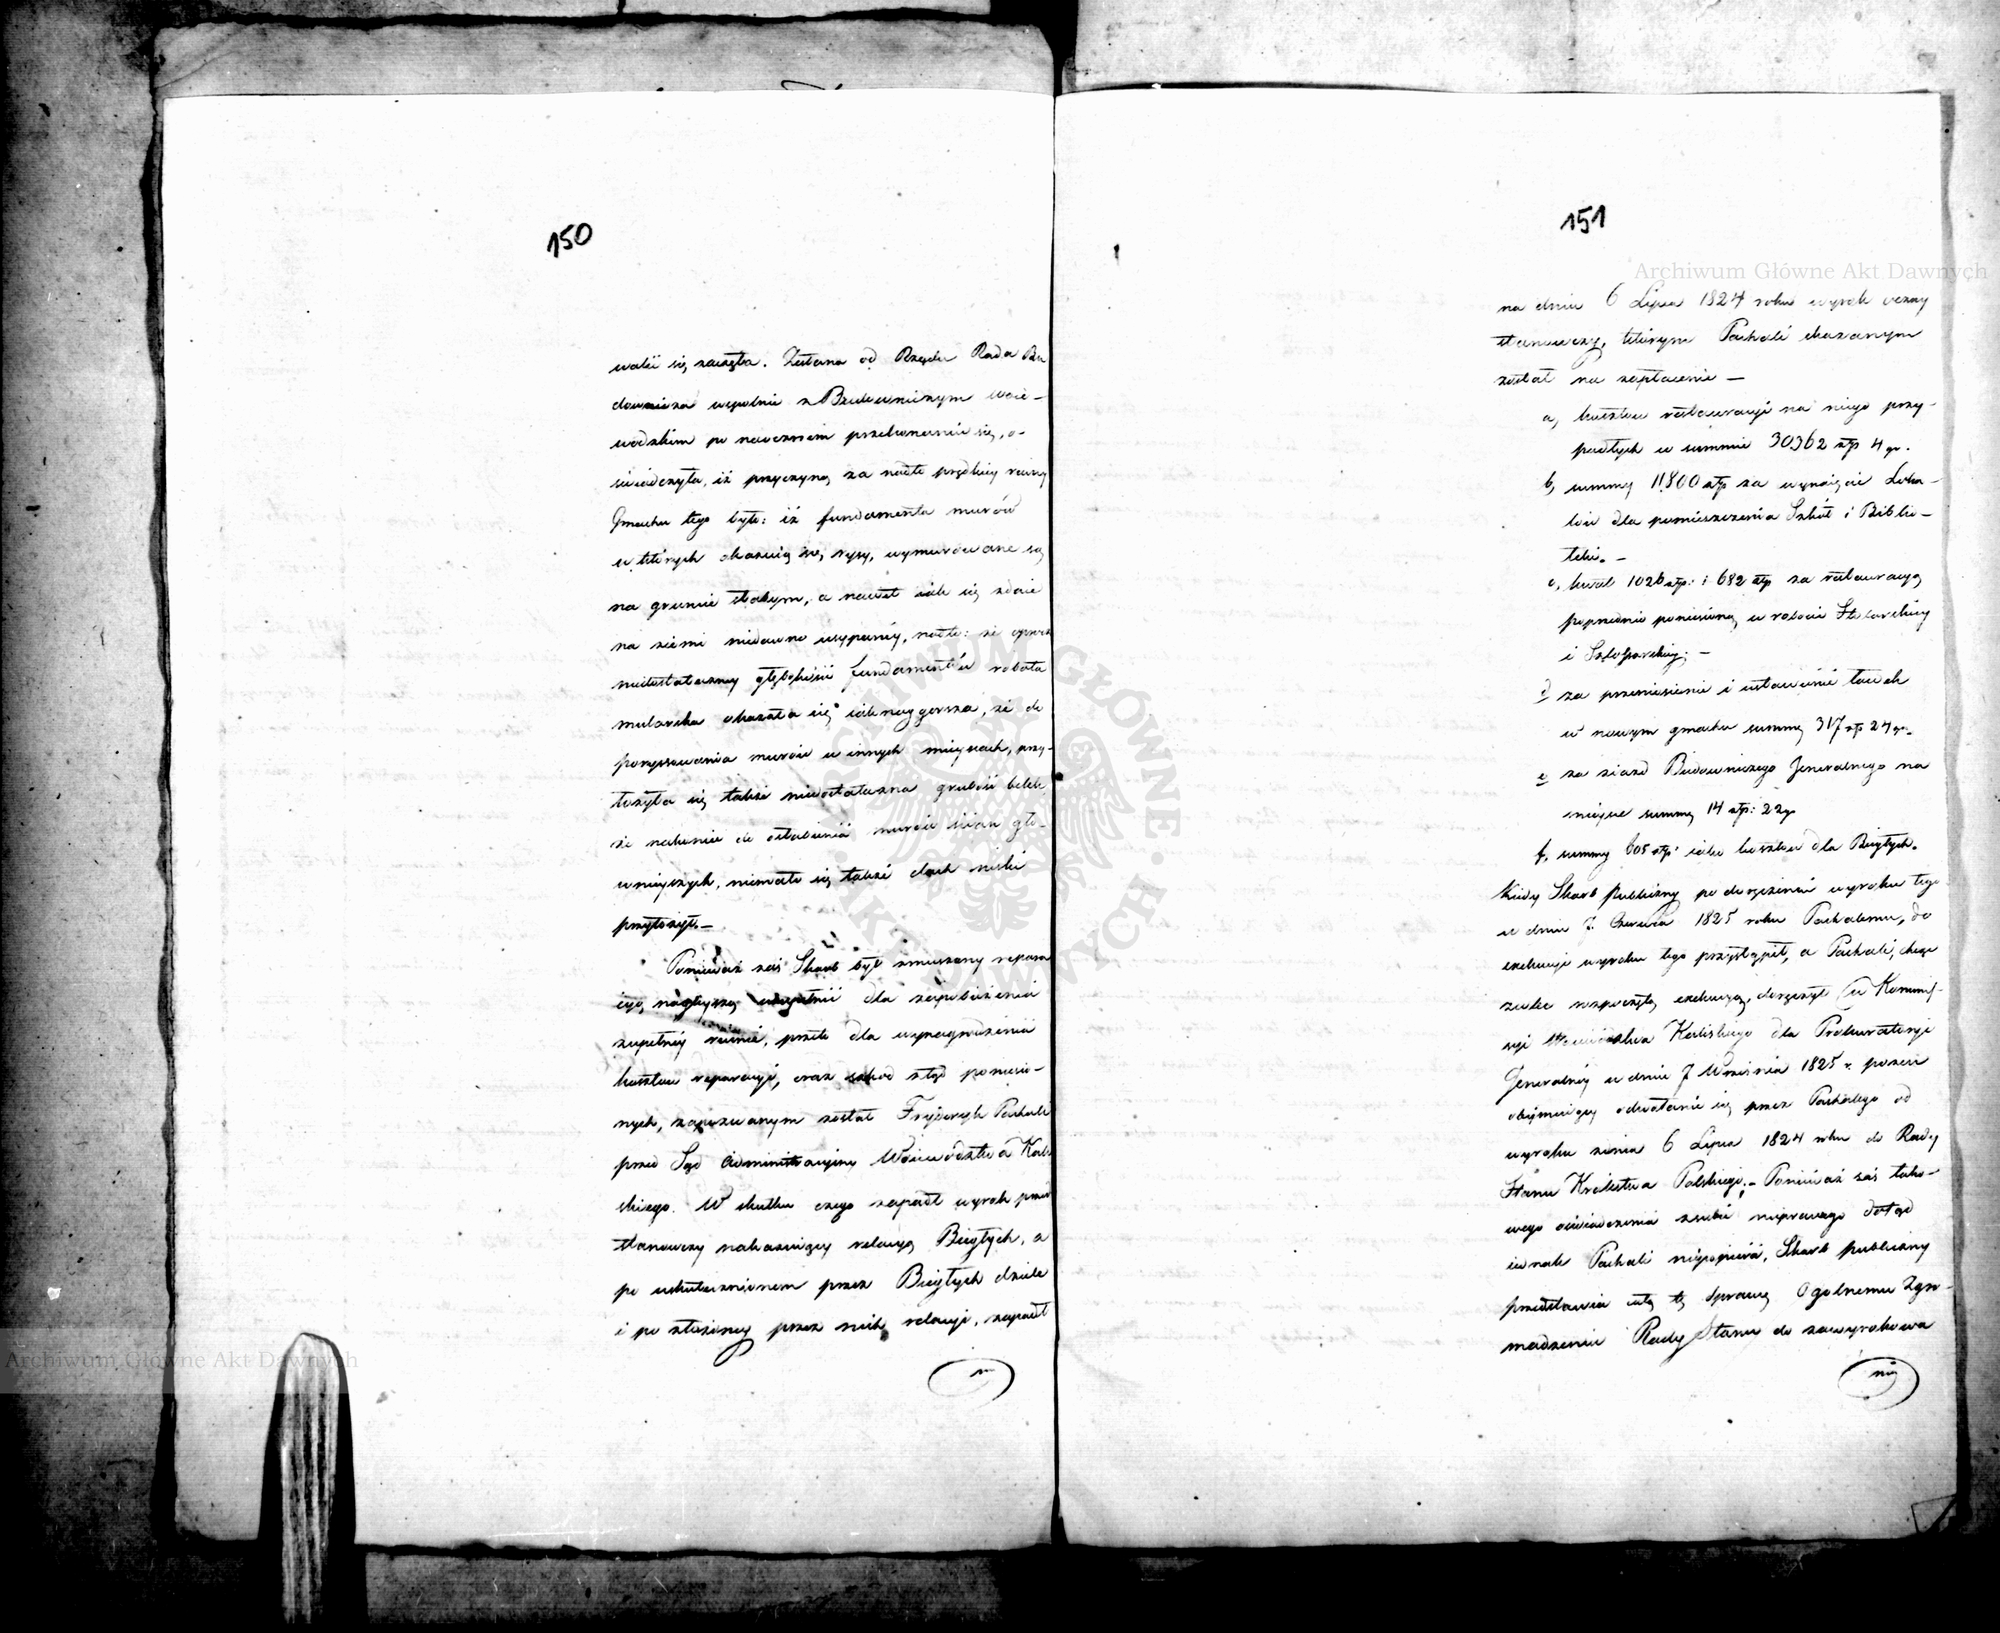 150
walić się zaczęła. Zesłana od Rządu Rada Bu
downicza wspólnie z Budowniczym woie-
wodzkim po naocznem przekonaniu się, o-
świadczyła, iż przyczyną za nadto prędkiey ruiny
Gmachu tego było: iż fundamenta murów
w których okazuią się rysy, wymurowane są
na gruncie słabym, a nawet iak się zdaie
na ziemi niedawno usypaney, nadto: że oprócz
niedostateczney głębokości fundamentów robota
mularska okazała się iaknaygorsza, że do
porysowania murów w innych mieyscach, przy-
łożyła się także niedostateczna grubość belek,
że nakoniec do osłabienia murów ścian głó-
wnieyszych, niemało się także dach niski
przyłożył. —
Ponieważ zaś Skarb był zmuszony repara
cyą naygłyszą uzupełnić dla zapobieżenia
zupełney ruinie, przeto dla wynagrodzenia
kosztów reparacyi, oraz szkód ztąd poniesio-
nych, zapozwanym został Fryderyk Paschali
przed Sąd Administracyiny Woiewództwa Kali
skiego. W skutku czego zapadł wyrok przed
stanowczy nakazuiący relacyą Biegłych, a
po uskutecznionem przez Biegłych dziele
i po złożoney przez nich relacyi, zapadł
151
Archiwum Główne Akt Dawnych
na dniu 6 Lipca 1824 roku wyrok oczny
stanowczy, którym Paschali skazanym
został na zapłacenie —
a, kosztów restauracyi na niego przy-
padłych w summie 30362 złp 4 gr.
b, summy 11,800 złp za wynaięcie Loka-
lów dla pomieszczenia Szkół i Biblio-
teki. —
c, kwot 1026 złp: i 682 złp za restauracyą
poprzednio poniesioną w robocie Stolarskiey
i Szlosarskiey; —
d za przeniesienie i ustawienie ławek
w nowym gmachu summę 317 złp 24 gr.
e za ziazd Budowniczego Generalnego na
mieysce summę 14 złp: 22 gr
f, summy 605 złp: iako kosztów dla Biegłych.
Kiedy Skarb Publiczny po doręczeniu wyroku tego
w dniu 7. Czerwca 1825 roku Paschalemu, do
exekucyi wyroku tego przystąpił, a Paschali, chcąc
zwlec rozpoczętą exekucyą, doręczył w Kommis-
syi Woiewództwa Kaliskiego dla Prokuratoryi
Generalney w dniu 7 Września 1825 r. pozew
obeymuiący odwołanie się przez Paschalego od
wyroku z dnia 6 Lipca 1824 roku do Rady
Stanu Królestwa Polskiego. — Ponieważ zaś tako-
wego oświadczenia dotąd
iednak Paschali niepopierał, Skarb publiczny
przedstawia całą tę Sprawę Ogólnemu Zgro-
madzeniu Rady Stanu do zawyrokowa
nia
Archiwum Główne Akt Dawnych
ARCHIWUM GŁÓWNE
AKT DAWNYCH